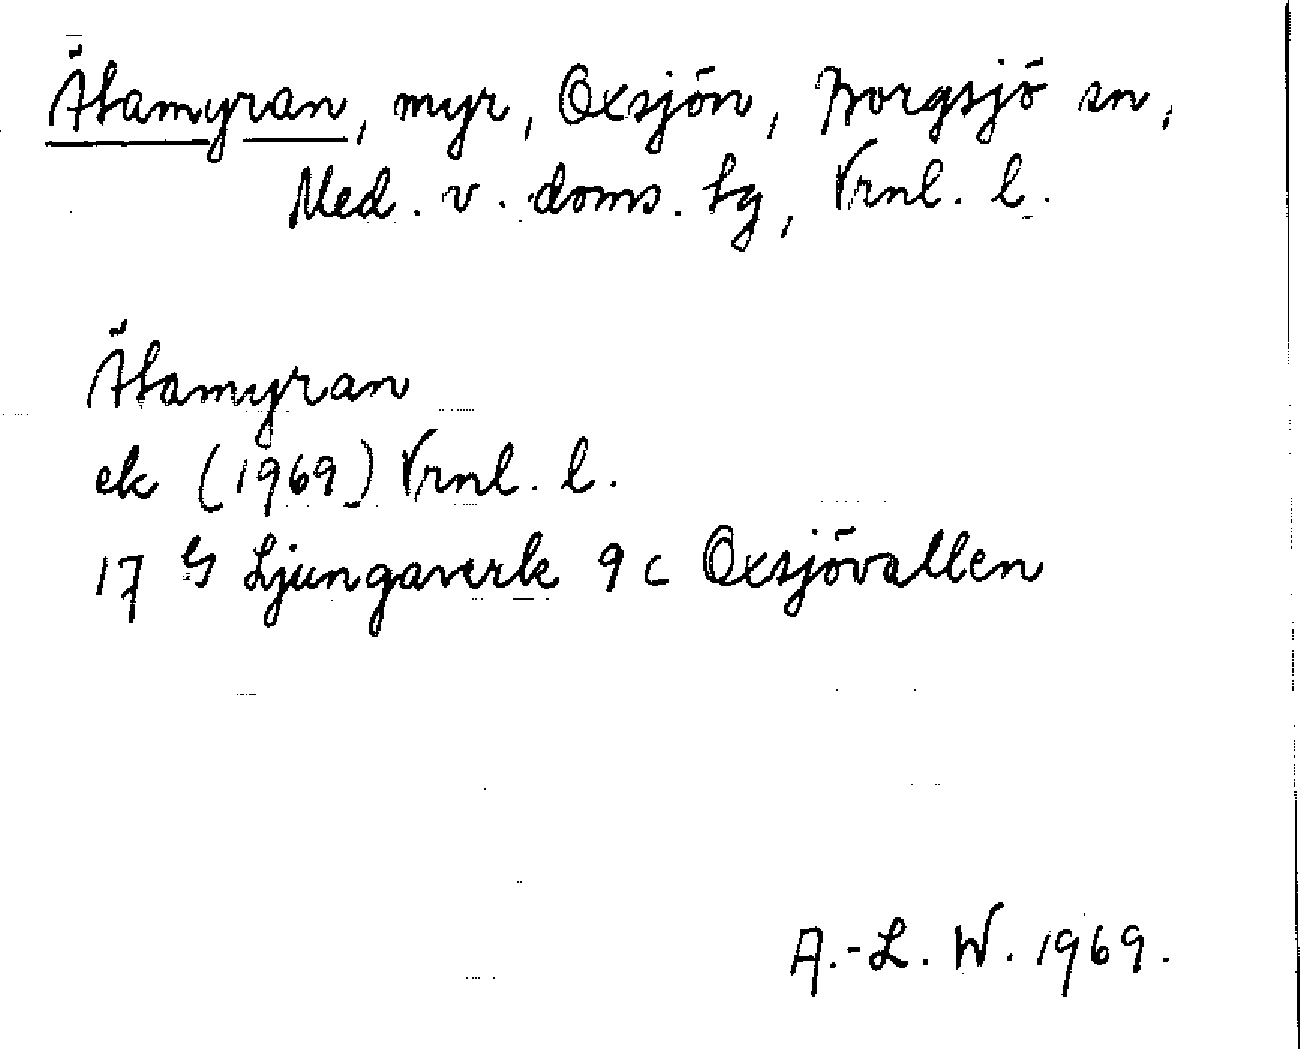 Ätamyran, myr, Oxsjön, Borgsjö sn,
Med. v. doms. tg, Vrnl. l.
Ätamyran
ek (1969) Vrnl. l.
17 G Ljungaverk 9 c Oxsjövallen
A.-L. W. 1969.